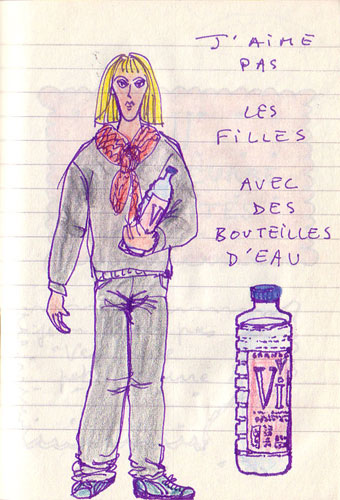 J'AIME
PAS
LES
FILLES
AVEC
DES
BOUTEILLES
D'EAU